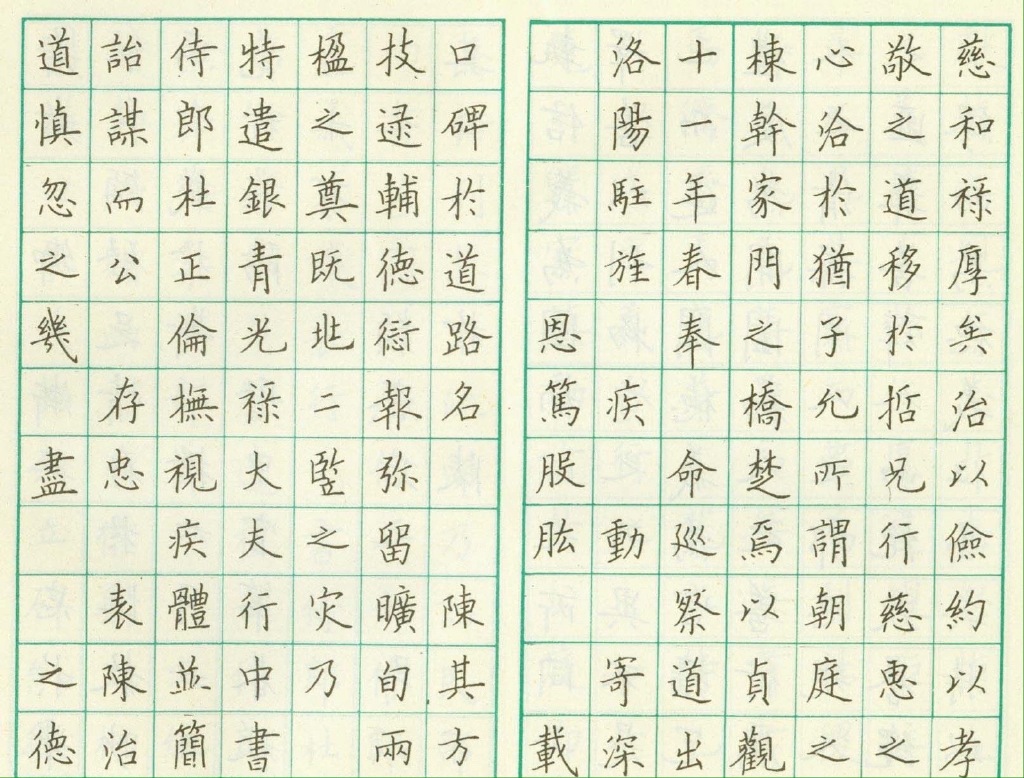 慈和祿厚矣治以儉約以孝
敬之道移於哲兄行慈惠之
心洽於猶子允所謂朝庭之
棟幹家門之橋楚焉以貞觀
十一年春奉 命巡察道出
洛陽駐旌 疾動 寄深
恩篤股肱 載
口碑於道路名 陳其方
技逯輔德衍報弥留曠旬兩
楹之奠既兆二竪之灾乃
特遣銀青光祿大夫行中書
侍郎杜正倫撫視疾體並簡
詒謀而公 存忠 表陳治
道慎忽之幾 盡 之德